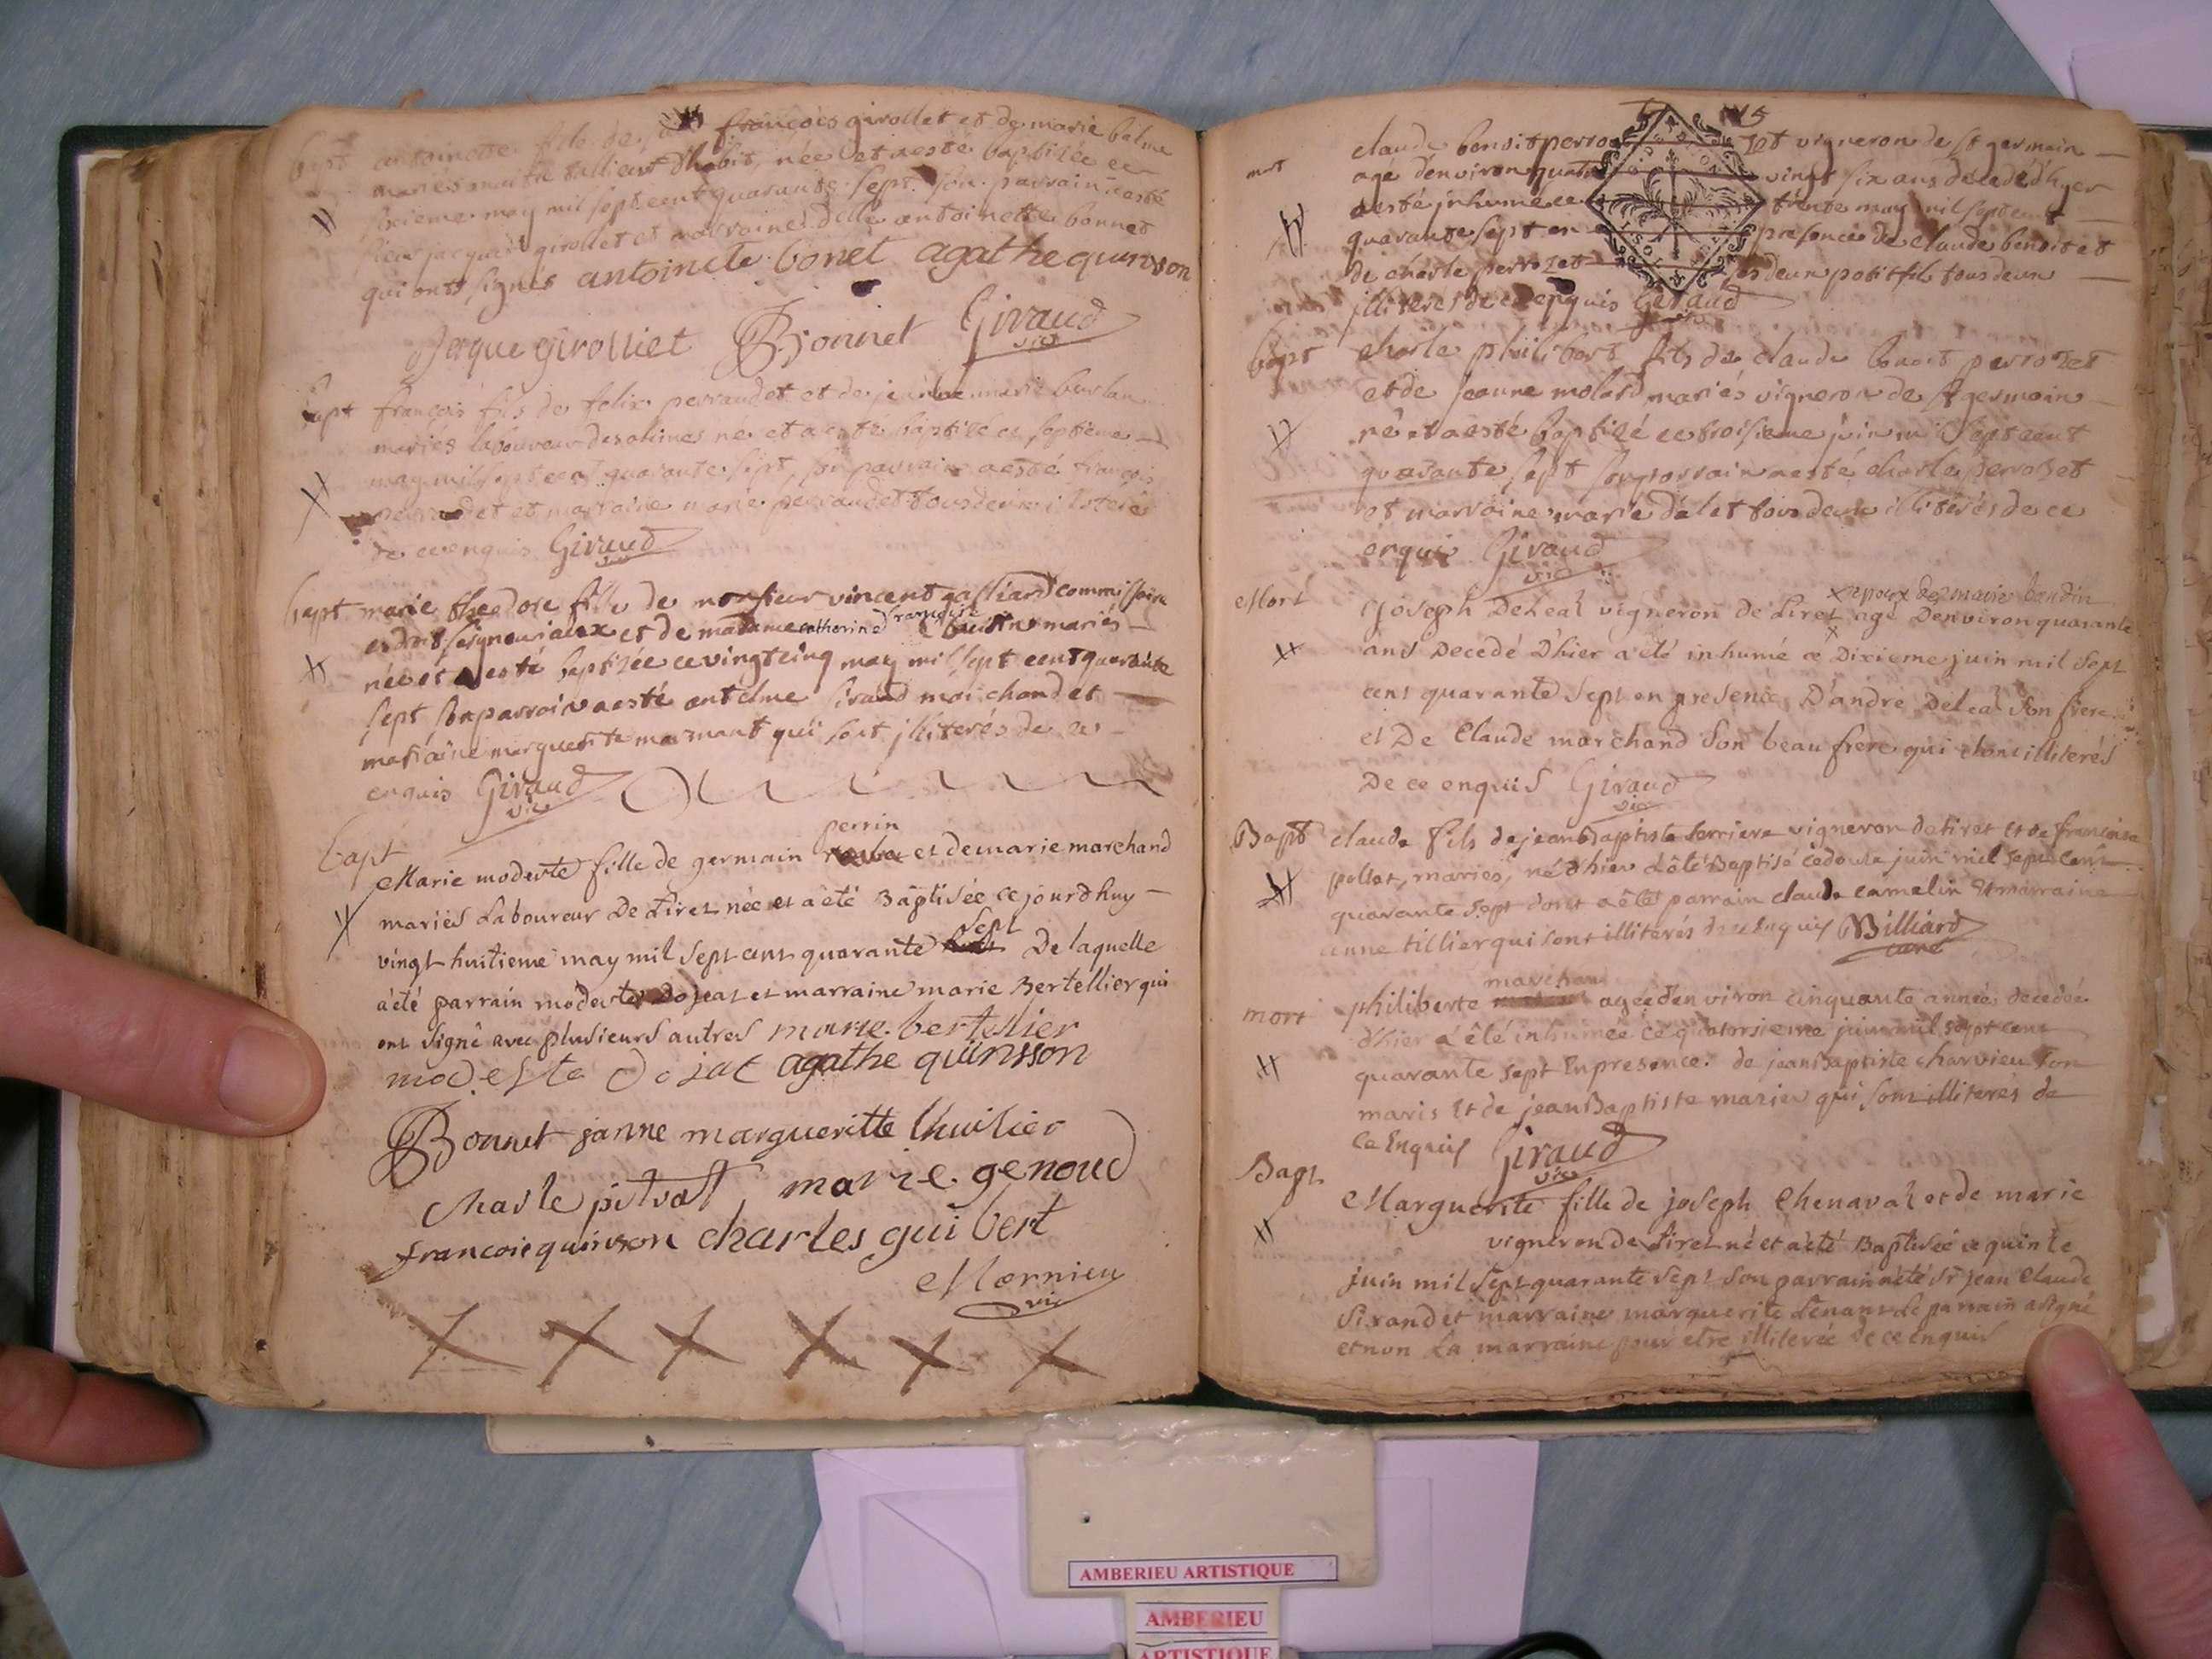 bapt antoinette fille de françois girollet et de marie balme
mariés maitre tallieur d'habit, née et a esté baptisée ce
may mil sept cent quarante sept son parrain a esté
sieur jacques girollet et marraine delle antoinette bonnet
qui ont signés antoinete bonet agathe quinson
Jaque girolliet Bonnet Giraud
vic
bapt françois fils de felix perraudet et de jeanne marie
mariés laboureur des alimes né et a esté baptizé ce septieme
may mil sept cent quarante sept, son parrain a esté françois
perraudet et marraine marie perraudet tous deux illiterés
de ce enquis Giraud
vic
bapt marie theodore fille de monsieur vincent galliard commissaire
françoise
es droit seigneuriaux et de madame catherine mariés
née et a esté baptizée ce vingt cinq may mil sept cent quarante
sept son parrain a esté antelme sirand marchand et
marraine marguerite marmant qui sont illiterés de ce
enquis Giraud
vic
bapt
perrin
Marie modeste fille de germain et de marie marchand
mariés Laboureur De tiret née et a été Baptisée ce jourdhuy
sept
vingt huitieme may mil sept cent quarante De laquelle
a été parrain modeste dojeat et marraine marie Bertellier qui
ont signé avec plusieurs autres marie bertellier
modeste dojat agathe quinsson
Bonnet janne margueritte lhuilier
Charle pitrat marie genoud
francoie quinson charles guibert
Mornieu
vic
115
mort claude benoit perrozet vigneron de st germain
agé d'environ quatre vingt six ans décedé d'hyer
a esté inhumé ce trente may mil sept cent
quarante sept en presence de claude benoit et
de charle perrozet ses deux petit fils tous deux
illiterés de ce enquis Giraud
vic
bapt charle philibert fils de claude benoit perrozet
et de jeanne molard mariés vigneron de st germain
né et a esté baptizé ce troisieme juin mil sept cent
quarante sept son parrain a esté charle perrozet
et marraine marie délet tous deux illiterés de ce
enquis Giraud
vic
x epoux de marie baudin
Mort Joseph DeLeaz vigneron de tiret x agé Denviron quarante
ans Decedé D'hier a été inhumé ce Dixieme juin mil sept
cent quarante sept en presence D'andré Deleaz son frere
et De Claude marchand son beau frere qui sont illiterés
De ce enquis Giraud
vic
Bapt claude fils de jean Baptiste terriere vigneron de tiret Et de francoise
pollet, mariés, né d'hier a êté Baptisé ce douze juin mil sept cent
quarante sept dont a êté parrain claude camelin Et marraine
anne tillier qui sont illiterés de ce Enquis Billiard
curé
marchand
mort philiberte agée d'environ cinquante années decedée
d'hier a êté inhumée ce quatorsieme juin mil sept cent
quarante sept En presence de jean Baptiste charvieu son
maris Et de jean Baptiste marier qui sont illiterés de
ce Enquis Giraud
vic
Bapt Marguerite fille de joseph Chenavaz et de marie
vigneron de tiret né et a été Baptisée ce quinze
juin mil sept quarante sept son parrain a été sr jean Claude
sirand et marraine marguerite tenant Le parrain a signé
et non La marraine pour etre illiterée de ce enquis
AMBERIEU ARTISTIQUE
AMBERIEU
ARTISTIQUE